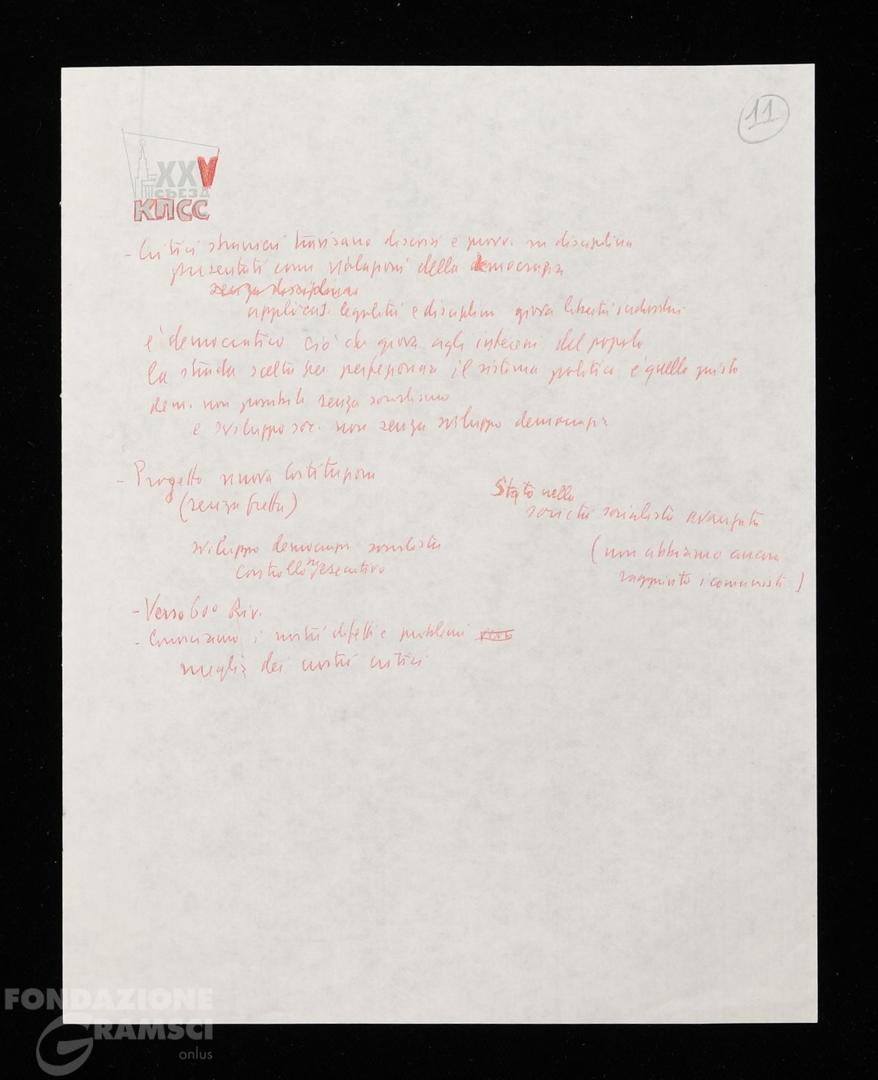 11
XXV
СЪЕЗД
КПСС
- Critici stranieri travisano discorsi e provv. su disciplina
presentati come violazioni della democrazia
senza disciplina
applicaz. legalità e disciplina giova libertà individui
è democratico ciò che giova agli interessi del popolo
la strada scelta per perfezionare il sistema politico è quella giusta
dem. non possibile senza socialismo
e sviluppo soc. non senza sviluppo democrazia
- Progetto nuova Costituzione
(senza fretta)
Stato nella
società socialista avanzata
sviluppo democrazia socialista
(non abbiamo ancora
controllo esecutivo
raggiunto i comunisti)
- Verso 60° Riv.
- Conosciamo i nostri difetti e problemi
meglio dei nostri critici
FONDAZIONE
GRAMSCI
onlus